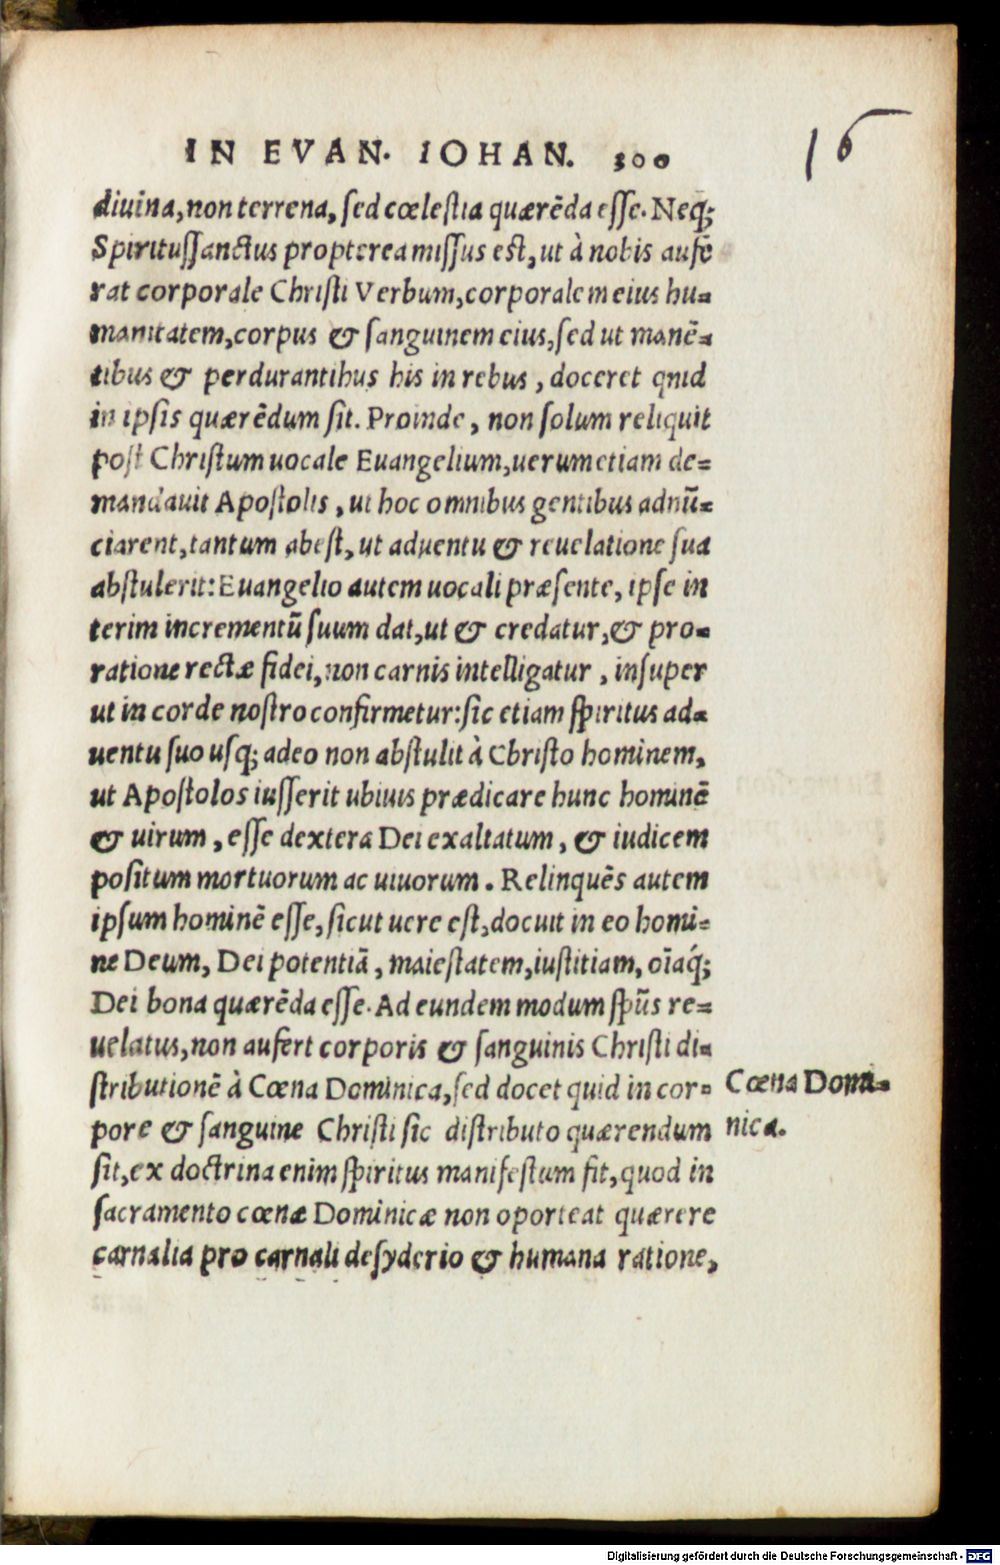 IN EVAN. IOHAN. 300
16
diuina, non terrena, ſed cœleſtia quærēda eſſe. Neq;
Spirituſſanctus propterea miſſus eſt, ut à nobis aufe
rat corporale Chriſti Verbum, corporalem eius hu-
manitatem, corpus & ſanguinem eius, ſed ut manē-
tibus & perdurantibus his in rebus, doceret quid
in ipſis quærēdum ſit. Proinde, non ſolum reliquit
poſt Chriſtum uocale Euangelium, uerumetiam de-
mandauit Apoſtolis, ut hoc omnibus gentibus adnū-
ciarent, tantum abeſt, ut aduentu & reuelatione ſua
abſtulerit: Euangelio autem uocali præſente, ipſe in
terim incrementū ſuum dat, ut & credatur, & pro-
ratione rectæ fidei, non carnis intelligatur, inſuper
ut in corde noſtro confirmetur: ſic etiam ſpiritus ad-
uentu ſuo uſq; adeo non abſtulit à Chriſto hominem,
ut Apoſtolos iuſſerit ubiuis prædicare hunc hominē
& uirum, eſſe dextera Dei exaltatum, & iudicem
poſitum mortuorum ac uiuorum. Relinquēs autem
ipſum hominē eſſe, ſicut uere eſt, docuit in eo homi-
ne Deum, Dei potentiā, maieſtatem, iuſtitiam, oīaq́;
Dei bona quærēda eſſe. Ad eundem modum ſpūs re-
uelatus, non aufert corporis & ſanguinis Chriſti di-
ſtributionē à Cœna Dominica, ſed docet quid in cor-
pore & ſanguine Chriſti ſic diſtributo quærendum
ſit, ex doctrina enim ſpiritus manifeſtum fit, quod in
ſacramento cœnæ Dominicæ non oporteat quærere
carnalia pro carnali deſyderio & humana ratione,
Cœna Domi-
nica.
Digitalisierung gefördert durch die Deutsche Forschungsgemeinschaft - DFG